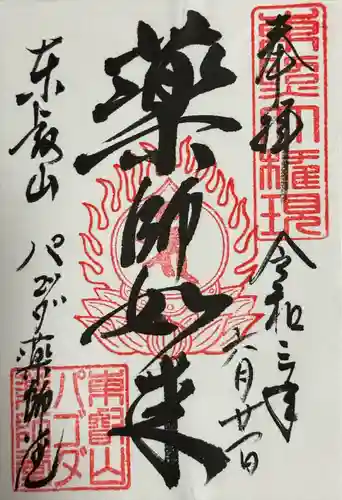 奉拝
令和三年
六月廿一日
薬師如来
東叡山
パゴダ薬師堂
東照大権現
東叡山
パゴダ
薬師堂